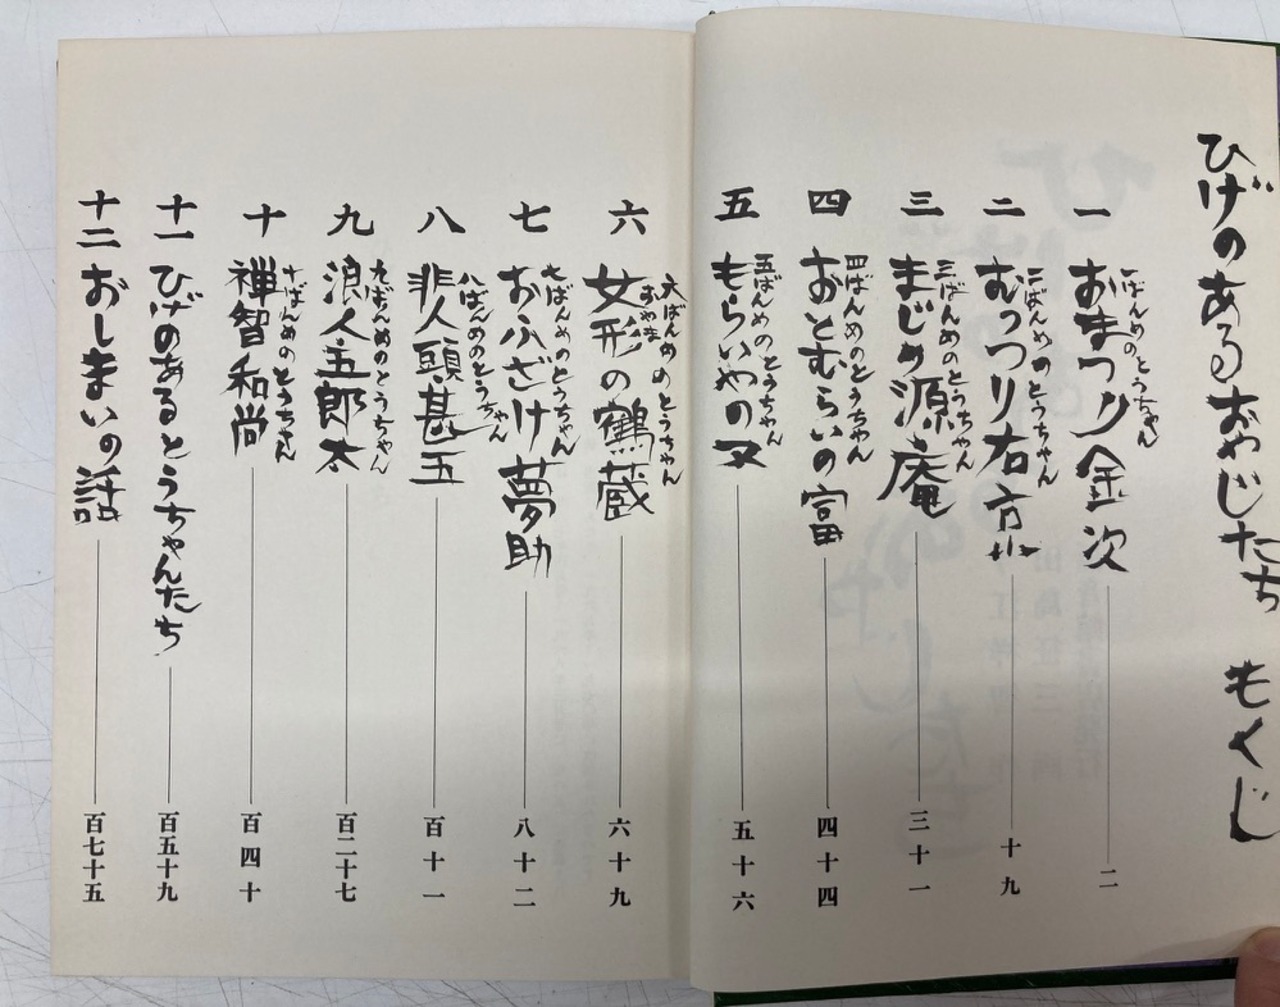 ひげのあるおやじたち もくじ
一 おまつり金次 二
一ばんめのとうちゃん
二 むっつり右京 十九
二ばんめのとうちゃん
三 まじめ源庵 三十一
三ばんめのとうちゃん
四 おとむらいの富 四十四
四ばんめのとうちゃん
五 もらいやの又 五十六
五ばんめのとうちゃん
六 女形の鶴蔵 六十九
おやま
六ばんめのとうちゃん
七 おふざけ夢助 八十二
七ばんめのとうちゃん
八 非人頭甚五 百十一
八ばんめのとうちゃん
九 浪人五郎太 百二十七
九ばんめのとうちゃん
十 禅智和尚 百四十
十ばんめのとうちゃん
十一 ひげのあるとうちゃんたち 百五十九
十二 おしまいの話 百七十五